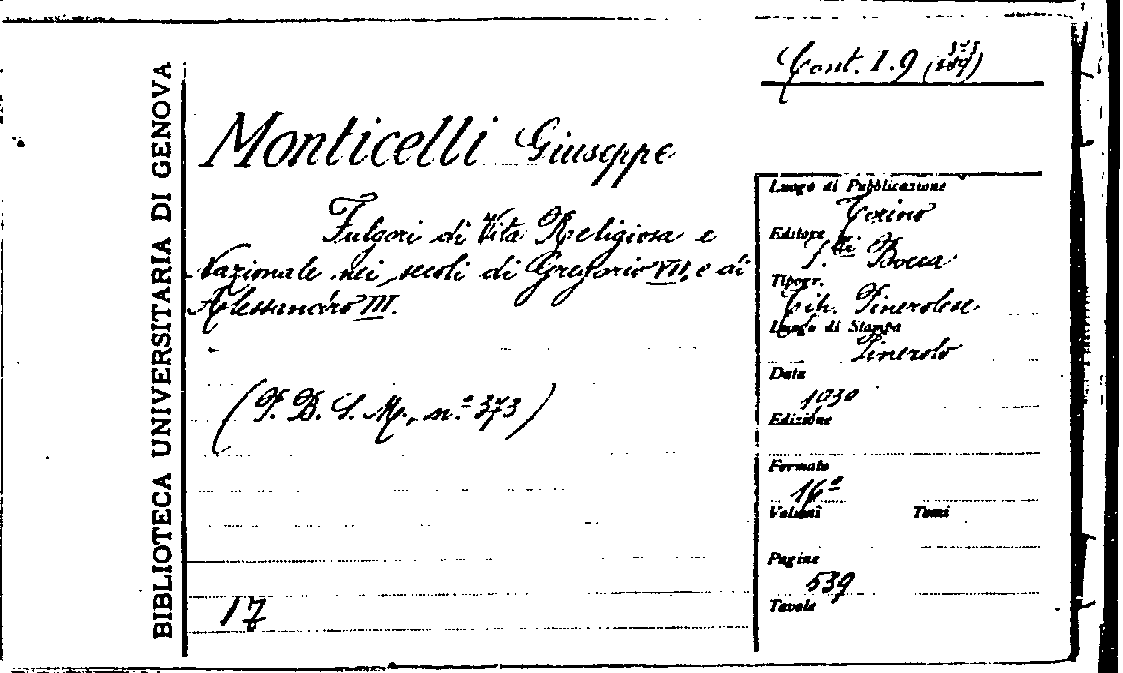 BIBLIOTECA UNIVERSITARIA DI GENOVA
Cont. 1.9 (373
Monticelli Giuseppe
Fulgori di Vita Religiosa e
Nazionale nei secoli di Gregorio VII, e di
Alessandro III.
(P. B. S. M., n.º 373)
17
Luogo di Pubblicazione
Torino
Editore
F.lli Bocca
Tipogr.
Tip. Pinerolese
Luogo di Stampa
Pinerolo
Data
1930
Edizione
Formato
16º
Volumi Tomi
Pagine
539
Tavole